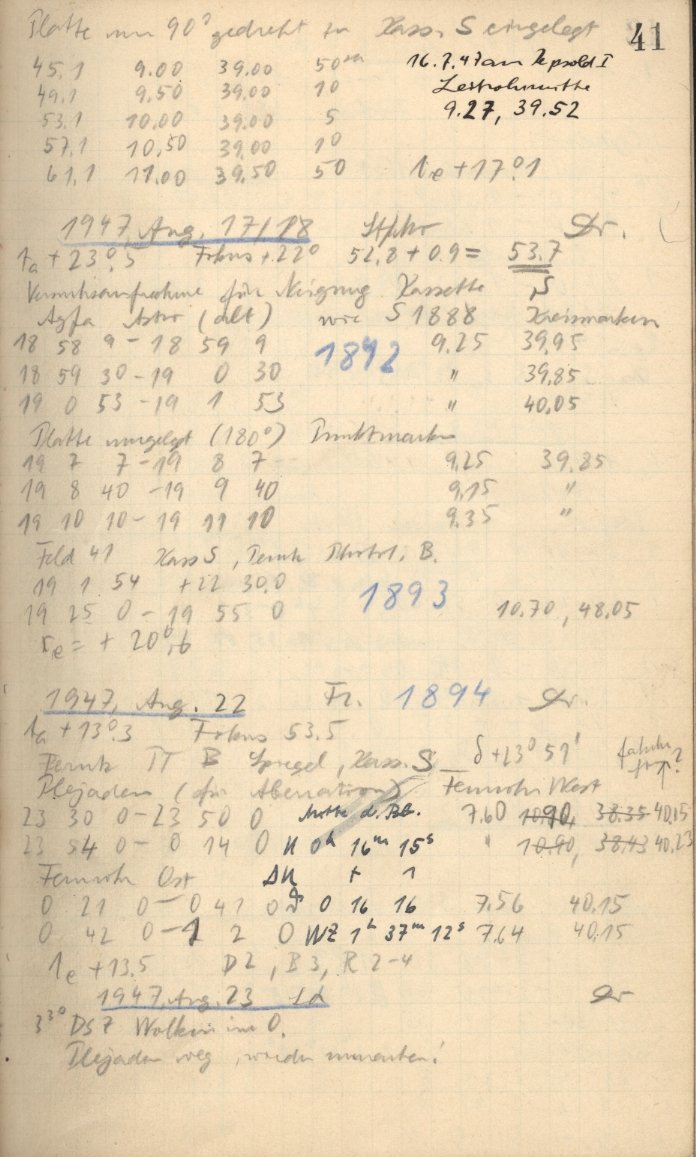 41
Platte um 90° gedreht in Kass. S eingelegt
45.1 9.00 39.00 50
49.1 9.50 39.00 10
53.1 10.00 39.00 5
57.1 10.50 39.00 10
61.1 11.00 39.50 50
16.7.47 am Repsold I
9.27, 39.52
te +17°.1
1947, Aug. 17/18 Dr.
ta +23°.5 Fokus +22° 52.8 + 0.9 = 53.7
Versuchsaufnahme für Neigung Kassette S
Agfa Astro (alt) wie S 1888 Kreismarken
18 58 9 - 18 59 9 1892 9.25 39.95
18 59 30 - 19 0 30 " 39.85
19 0 53 - 19 1 53 " 40.05
Platte umgelegt (180°) Punktmarken
19 7 7 - 19 8 7 9.25 39.85
19 8 40 - 19 9 40 9.15 "
19 10 10 - 19 11 10 9.35 "
Feld 41 Kass S, B.
19 1 54 +22 30.0
19 25 0 - 19 55 0 1893 10.70, 48.05
te = + 20°.6
1947, Aug. 22 Fr. 1894 Dr.
ta +13°.3 Fokus 53.5
B Spiegel, Kass. S δ +23° 51'
Plejaden (für Aberration) Fernrohr West
23 30 0 - 23 50 0 Mitte d. Bel. 7.60 10.90, 38.35 40.15
23 54 0 - 0 14 0 U 0h 16m 15s " 10.90, 38.43 40.23
Fernrohr Ost ΔU + 1
0 21 0 - 0 41 0 0 16 16 7.56 40.15
0 42 0 - 1 2 0 WZ 1h 37m 12s 7.64 40.15
te +13.5 D2, B3, R 2-4
1947, Aug. 23 Sa Dr
3 30 DS7 Wolken im O.
Plejaden weg, wieder